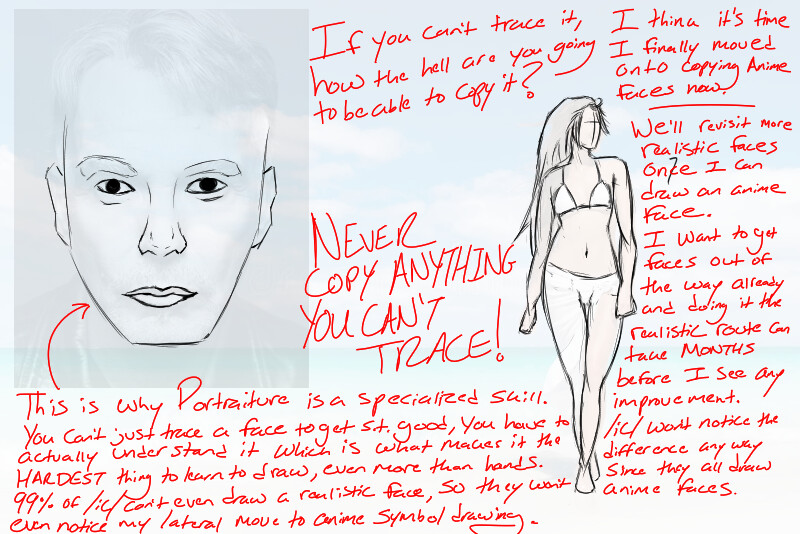 If you can't trace it,
how the hell are you going
to be able to copy it?
I think it's time
I finally moved
onto copying Anime
faces now.
We'll revisit more
realistic faces
once I can
draw an anime
face.
I want to get
faces out of
the way already
and doing it the
realistic route can
take MONTHS
before I see any
improvement.
/ic/ won't notice the
difference any way
since they all draw
anime faces.
NEVER
COPY ANYTHING
YOU CAN'T
TRACE!
This is why Portraiture is a specialized skill.
You can't just trace a face to get s.t. good, you have to
actually understand it which is what makes it the
HARDEST thing to learn to draw, even more than hands.
99% of /ic/ can't even draw a realistic face, so they won't
even notice my lateral move to anime symbol drawing.